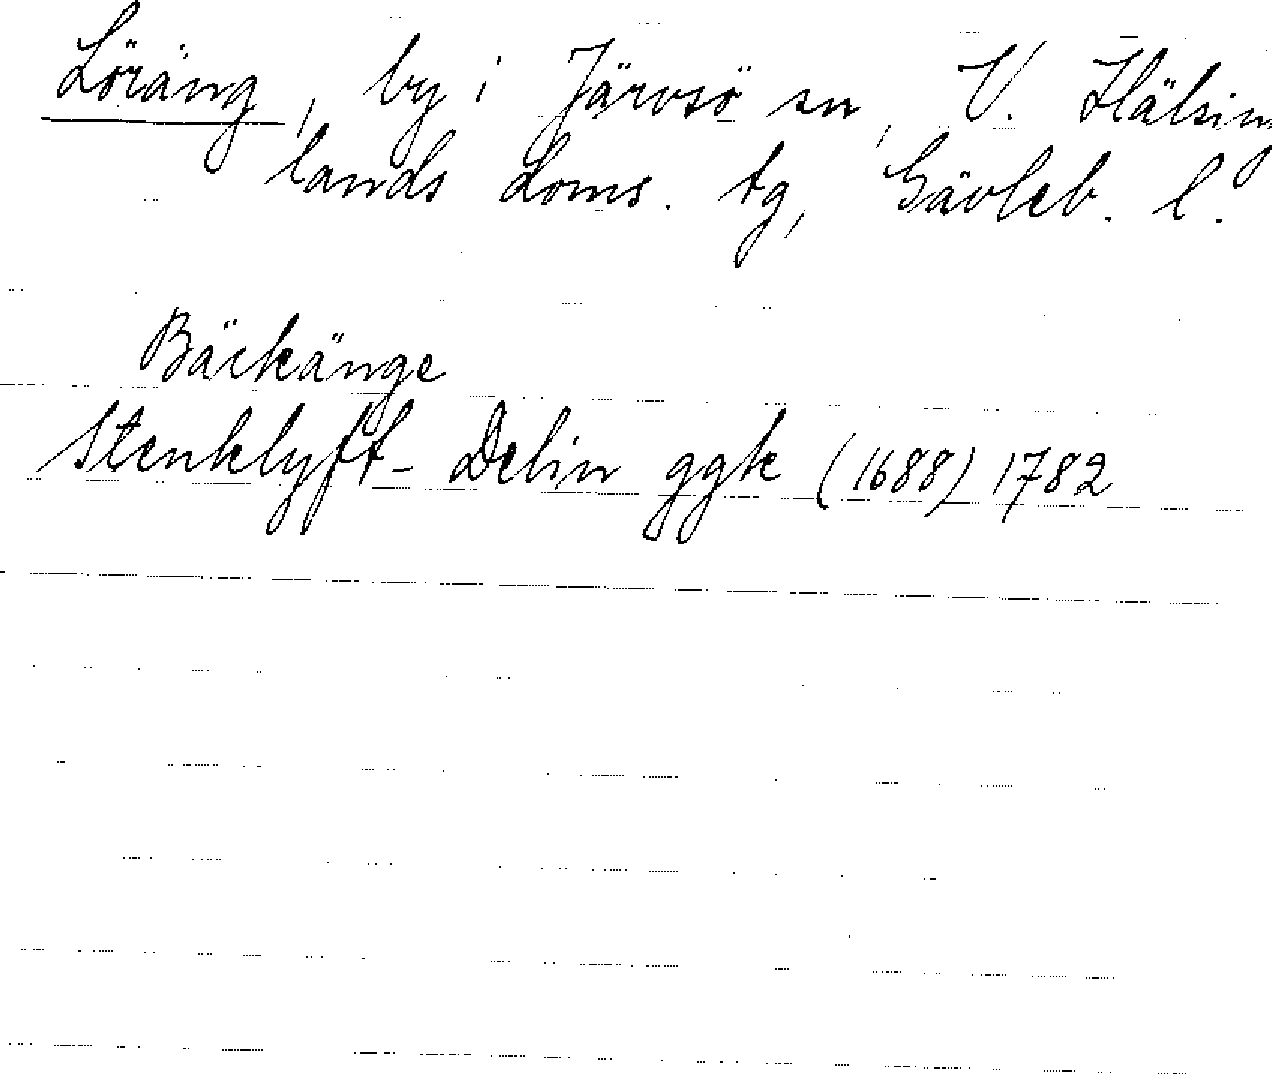 Löräng, by i Järvsö sn, V. Hälsing
lands doms. tg, Gävleb. l.
Bäckänge
Stenklyft- Delin ggk (1688) 1782